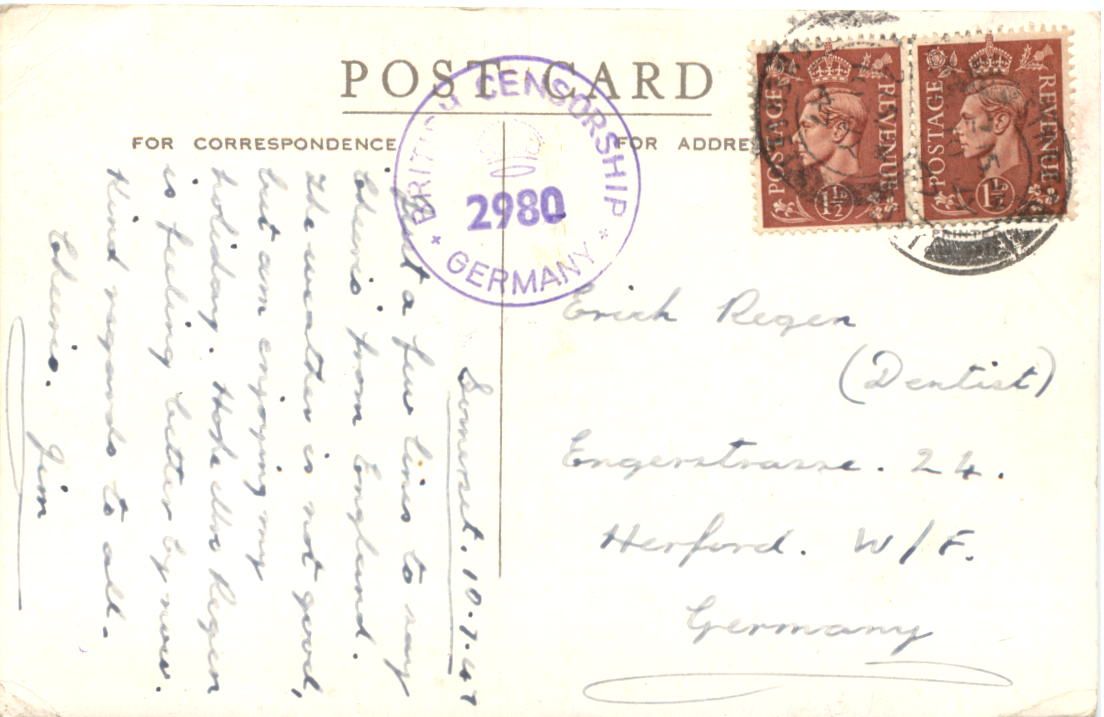 POST CARD
FOR CORRESPONDENCE
FOR ADDRE
BRITISH CENSORSHIP
2980
GERMANY
POSTAGE REVENUE
1½D
POSTAGE REVENUE
1½D
PRINTE
Somerset. 10.7.47
Just a few lines to say
Cheerio from England.
The weather is not good,
but am enjoying my
holiday. Hope Mrs Regen
is feeling better by now.
Kind regards to all.
Cheerio. Jim
Erich Regen
(Dentist)
Engerstrasse. 24.
Herford. W/F.
Germany